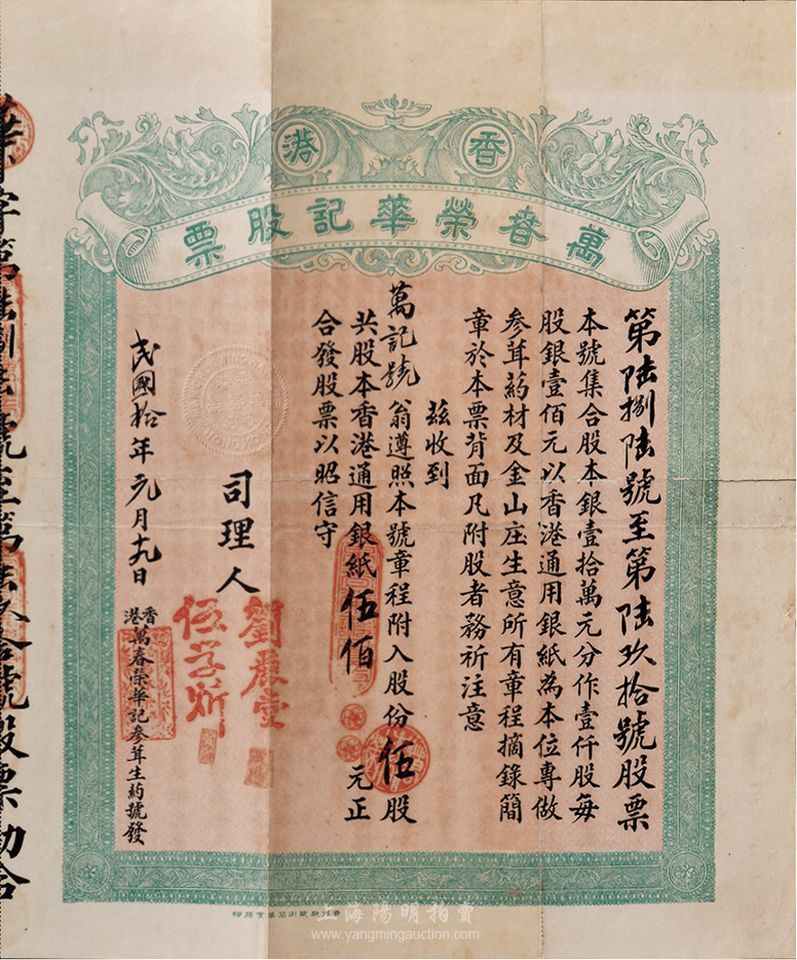 香港
萬春榮華記股票
第陸捌陸號至第陸玖拾號股票
本號集合股本銀壹拾萬元分作壹仟股每
股銀壹佰元以香港通用銀紙為本位專做
參茸葯材及金山庄生意所有章程摘錄簡
章於本票背面凡附股者務祈注意
茲收到
萬記號翁遵照本號章程附入股份伍股
共股本香港通用銀紙伍佰元正
合發股票以昭信守
司理人
劉麗堂
民國拾年元月十九日
香港萬春榮華記參茸生葯號發
字第陸捌陸號至第陸玖拾號股票勘合
上海陽明拍賣
www.yangmingauction.com